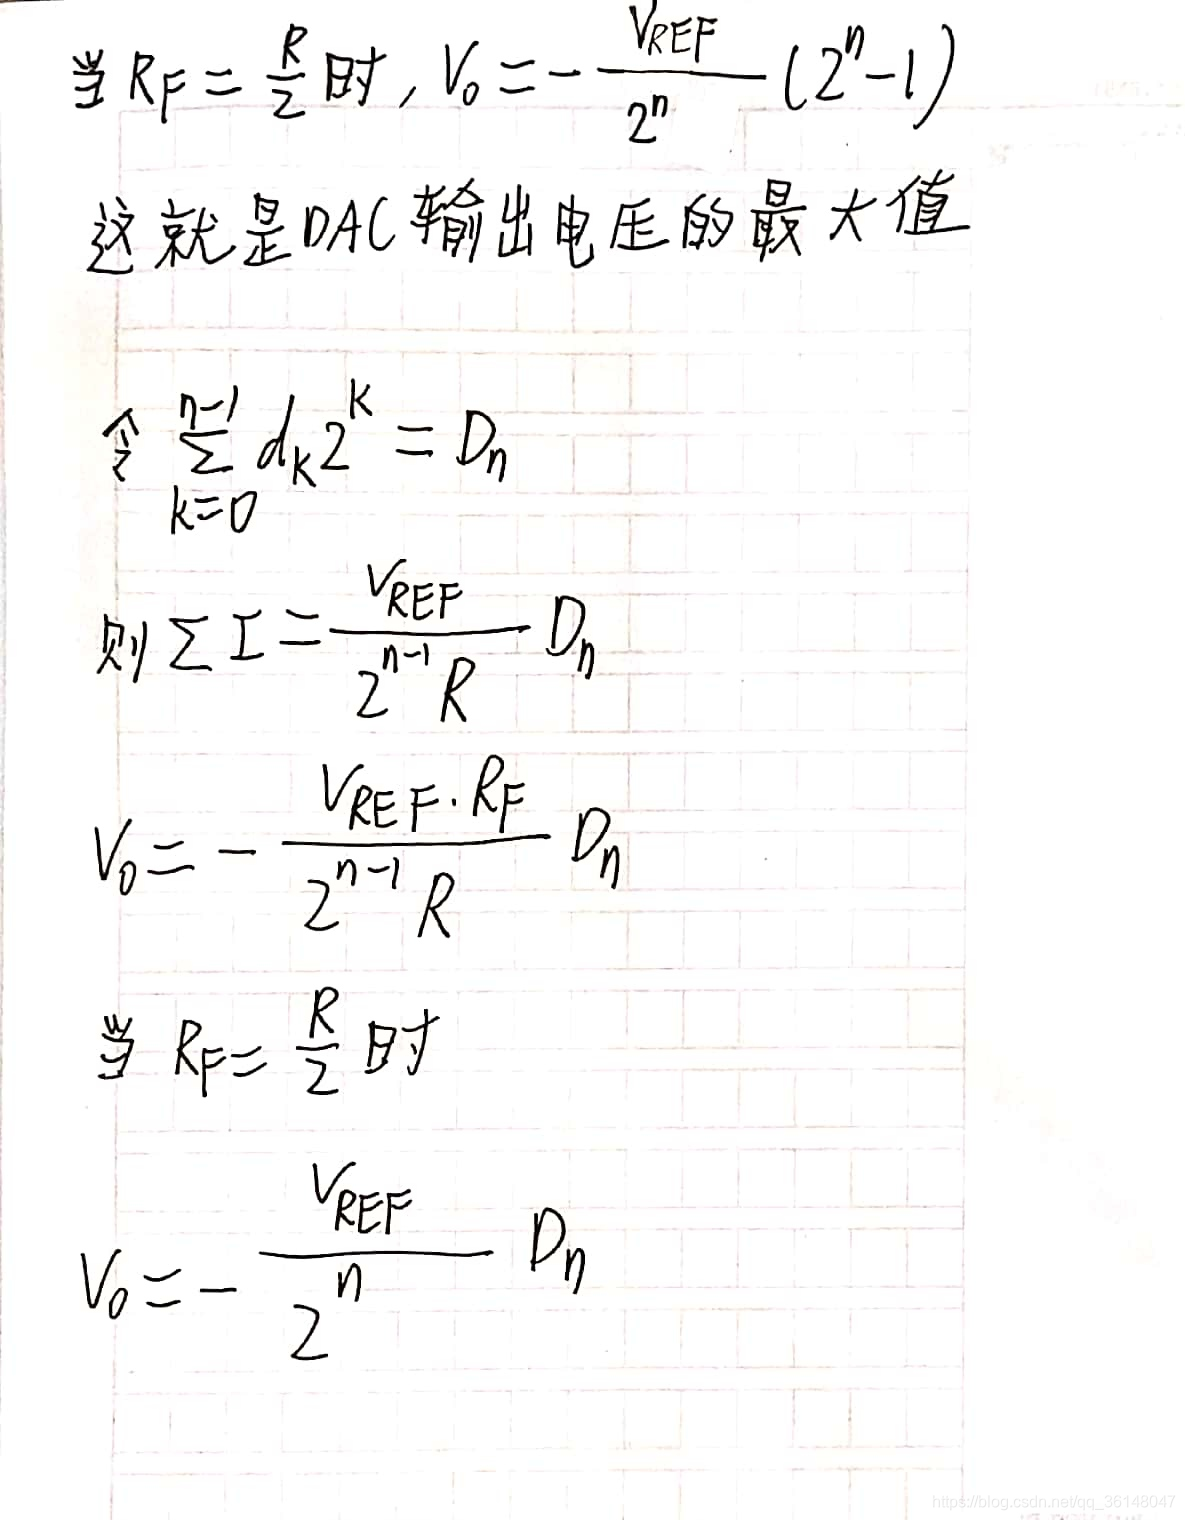 当 R_F = R/2 时, V_0 = - V_REF/2^n (2^n-1)
这就是DAC输出电压的最大值
令 ∑_{k=0}^{n-1} d_k 2^k = D_n
则 ∑ I = V_REF/(2^{n-1} R) D_n
V_0 = - (V_REF · R_F)/(2^{n-1} R) D_n
当 R_F = R/2 时
V_0 = - V_REF/2^n D_n
https://blog.csdn.net/qq_36148047